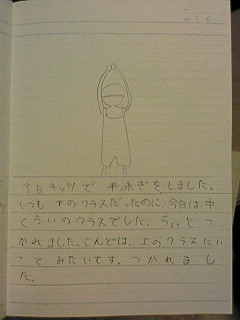 今日キッツで平泳ぎをしました。
いつも下のクラスだったのに、今日は中
くらいのクラスでした。ちょっとつ
かれました。こんどは、上のクラスにい
ってみたいです。つかれまし
た。